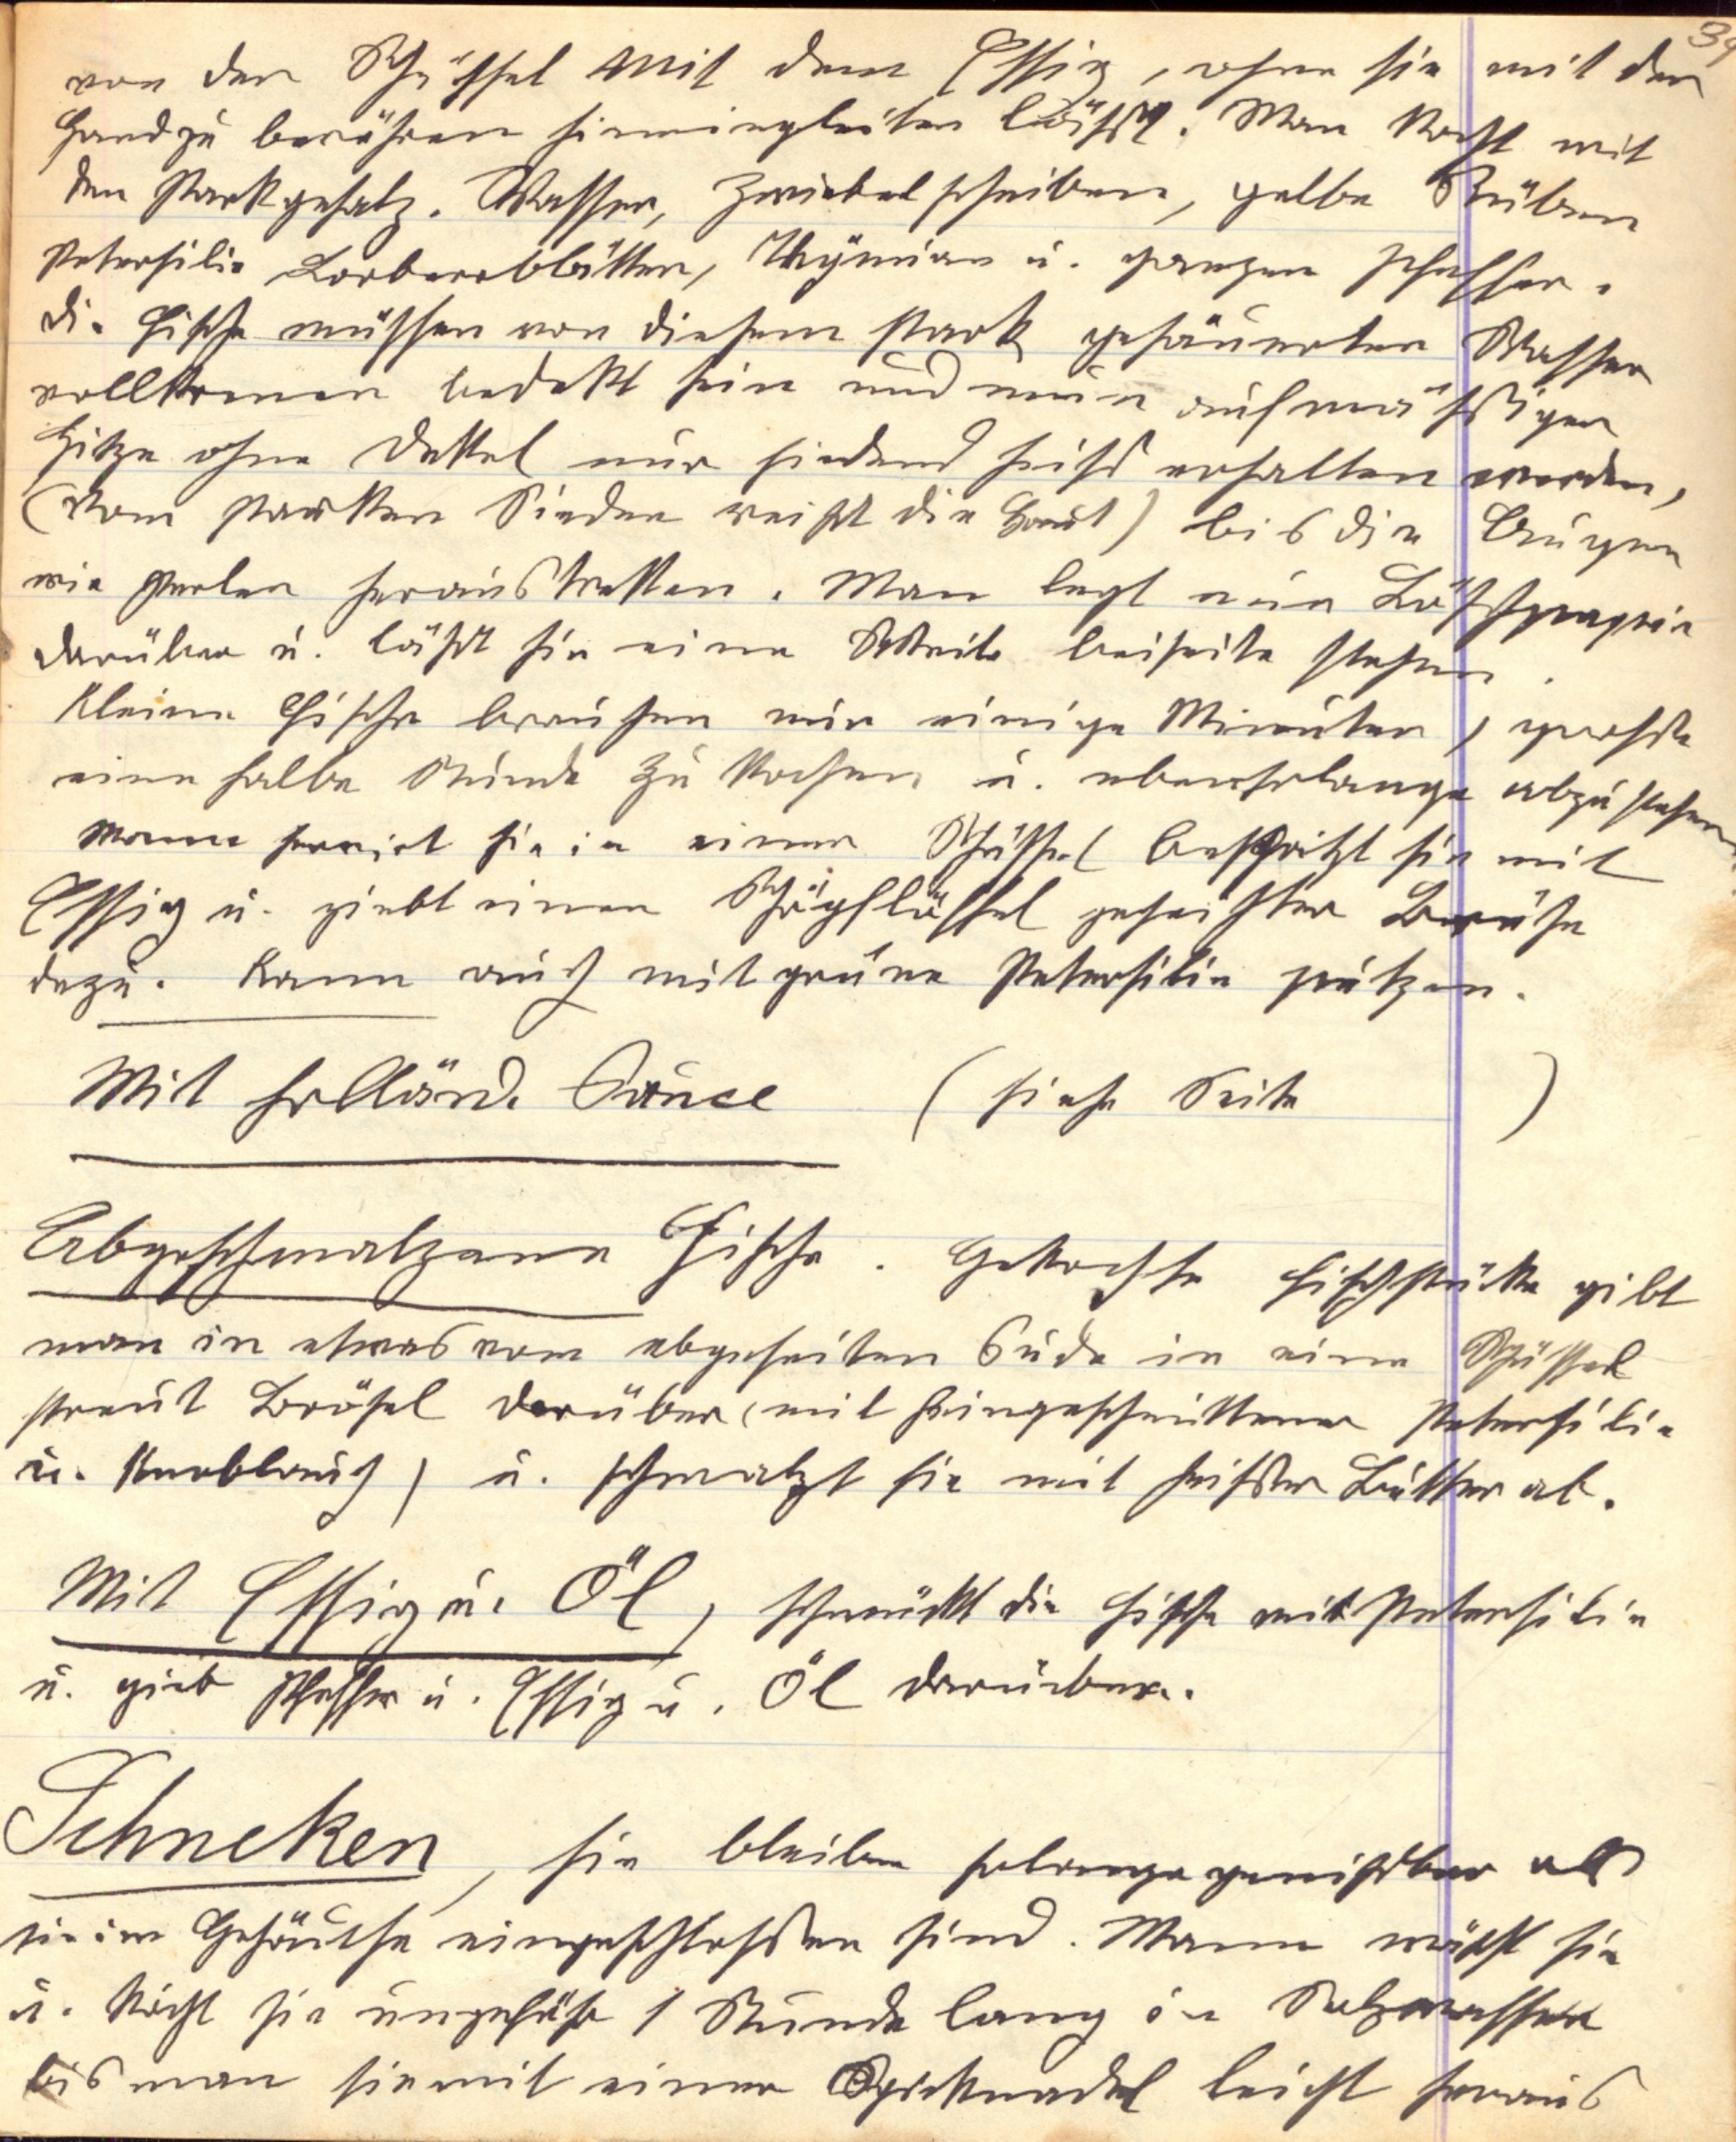 39
von der Schüssel mit dem Essig, ohne sie mit der
Hand zu berühren hineingleiten lässt. Man kocht mit
den stark gesalz. Wasser, Zwiebelscheiben, gelbe Rüben
Petersilie Lorberrblätter, Thÿmian u. ganzen Pfeffer.
die Fische müssen von diesem stark gesäuerten Wasser
vollkomen bedekt sein und nun auf mässiger
Hitze ohne Dekkel nur siedend heiss erhalten werden,
(vom starken Sieden reisst die Haut) bis die Augen
wie Perlen heraustretten. Man legt nun Löschpapir
darüber u. lässt sie eine Weile beiseite stehen.
Kleine Fische brauchen nur einige Minuten, grosse
eine halbe Stunde zu kochen u. ebensolange abzustehen
Mann servirt sie in einer Schüssel bespritzt sie mit
Essig u. giebt einen Schöpflöffel geseihter Brühe
dazu. Kann auch mit grüne Petersilie putzen.
Mit holländ. Sauce ( siehe Seite )
Abgeschmalzene Fische. Gekochte Fischstükke gibt
man in etwas vom abgeseiten Sude in eine Schüssel
streut Brösel darüber (mit feingeschnittener Petersilie
u. Knoblauch) u. schmalzt sie mit heisser Butter ab.
Mit Essig u. Öl, schmükt die Fische mit Petersilie
u. gieb Pfeffer u. Essig u. Öl darüber.
Schneken, sie bleiben solange geniessbar als
sie im Gehäuse eingeschlossen sind. Mann wäscht sie
u. kocht sie ungefähr 1 Stunde lang in Salzwasser
bis man sie mit einer Spicknadel leicht heraus